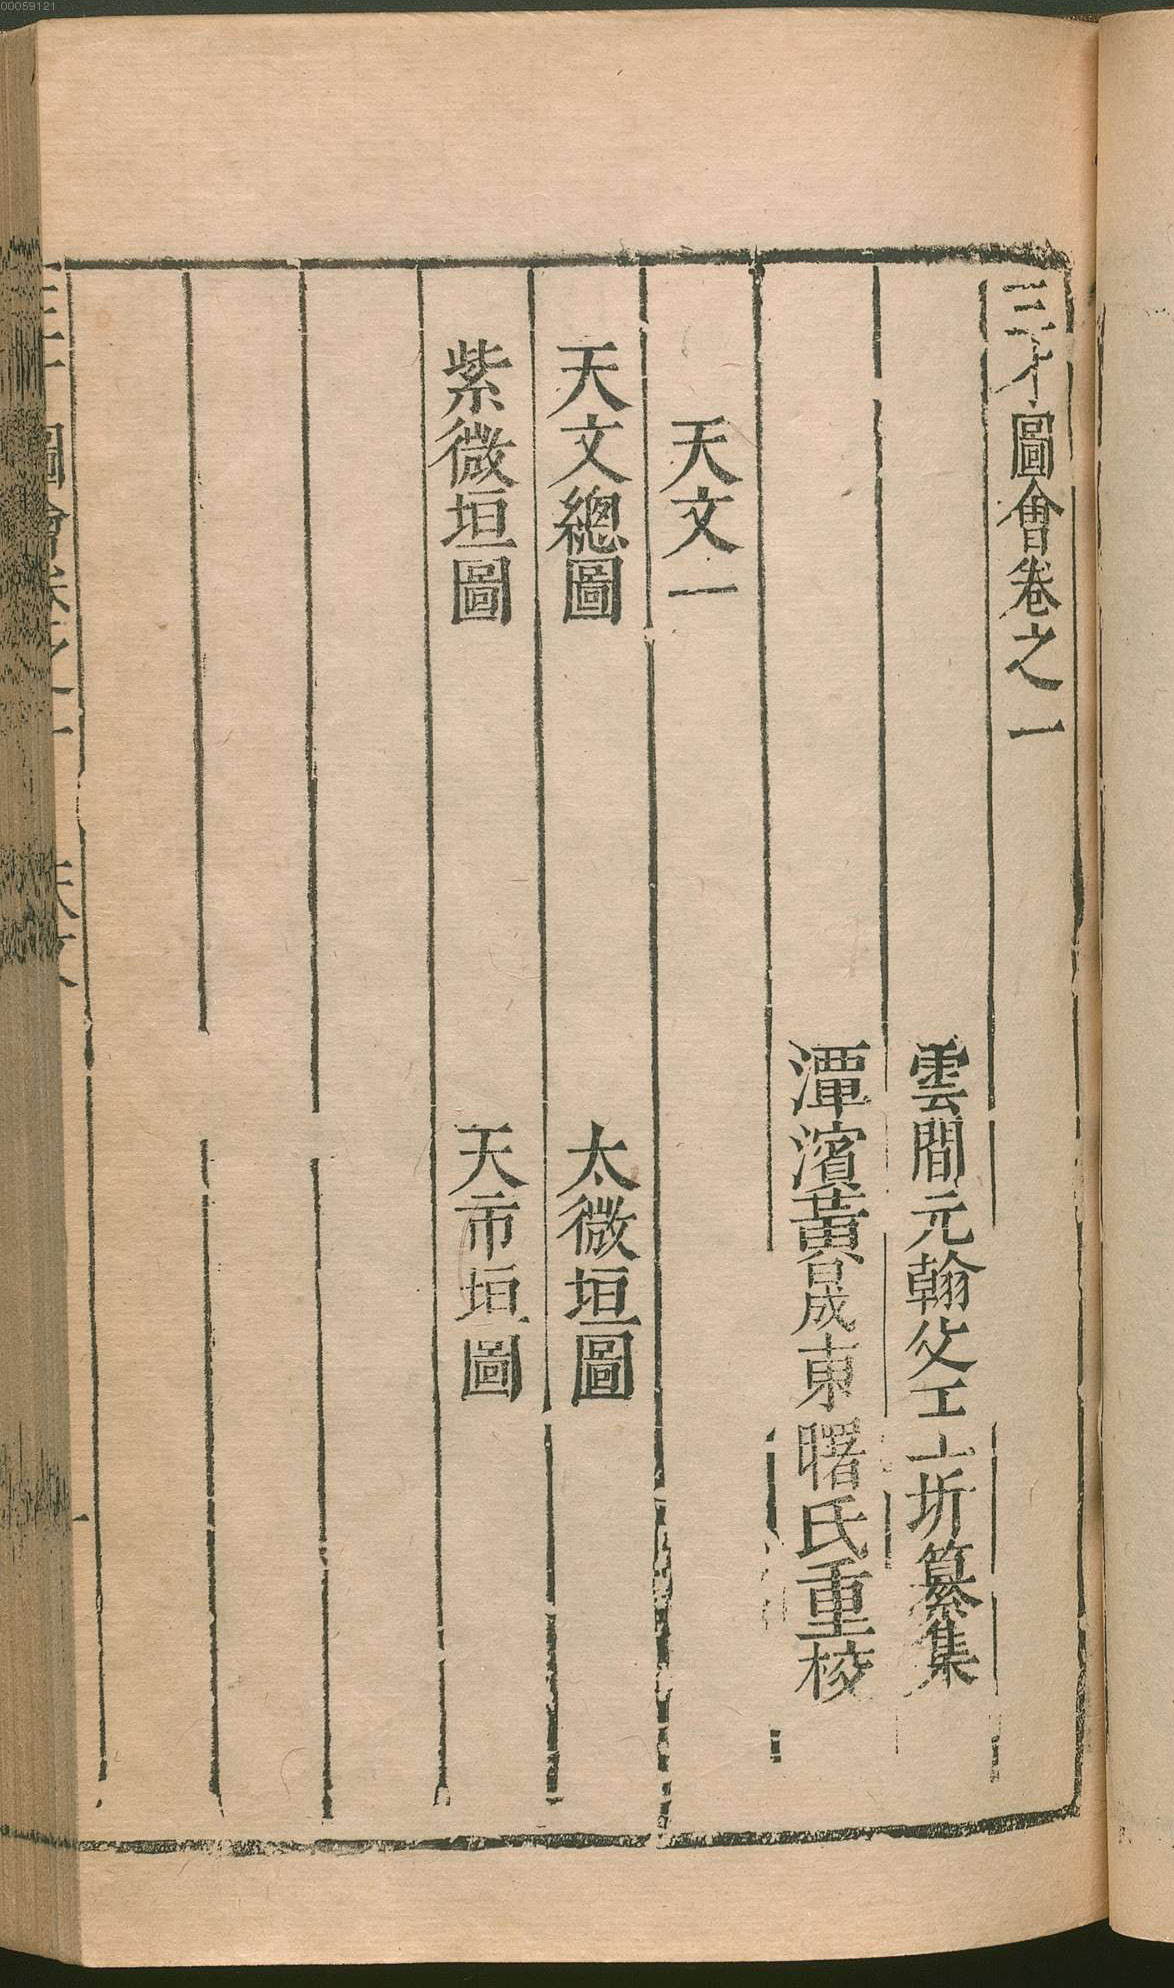 三才圖會卷之一
雲間元翰父王圻纂集
潭濱黃晟東曙氏重校
天文一
天文總圖
太微垣圖
紫微垣圖
天市垣圖
三才圖會卷之一
天文
一
00059121